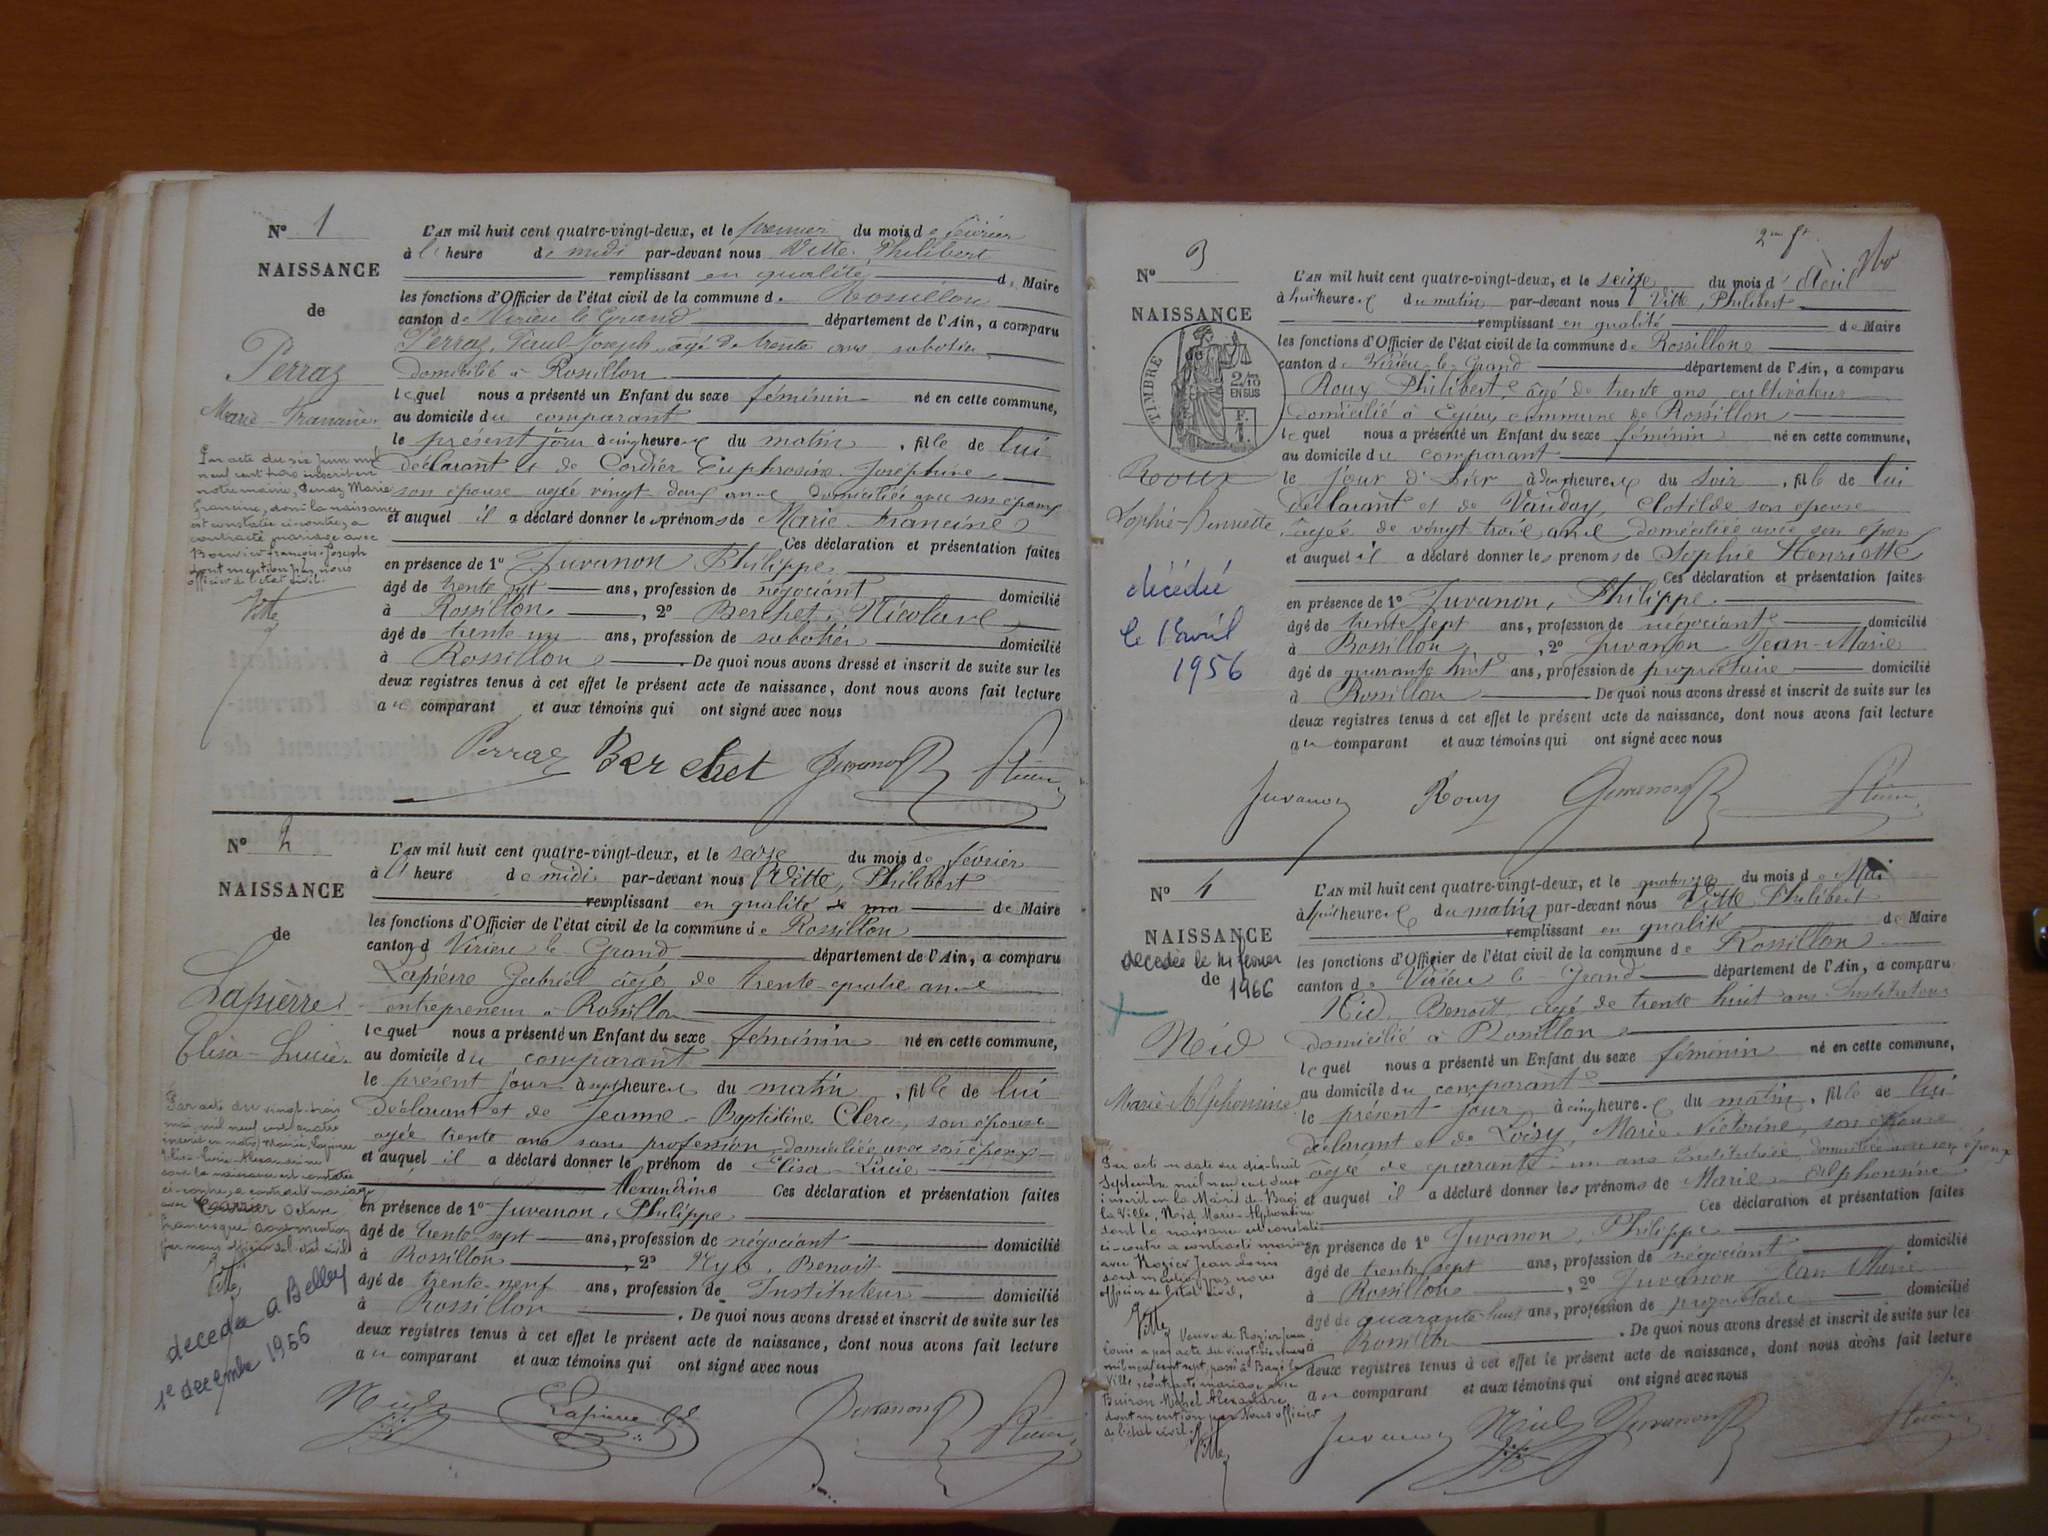 N° 1
NAISSANCE
de
Perraz
Marie-Francine
Par acte du six juin mil
neuf cent trois inscrit en
notre mairie, Perraz Marie
francine, dont la naissance
est constatée ci-contre, a
contracté mariage avec
françois-Joseph
dont mention par nous
officier de l'état civil.
Vitte
L'AN mil huit cent quatre-vingt-deux, et le premier du mois de février
à l' heure de midi par-devant nous Vitte, Philibert
remplissant en qualité de Maire
les fonctions d'Officier de l'état civil de la commune de Rossillon
canton de Virieu le Grand département de l'Ain, a comparu
Perraz, Paul Joseph, âgé de trente ans, sabotier
domicilié à Rossillon
lequel nous a présenté un Enfant du sexe féminin né en cette commune,
au domicile du comparant
le présent jour à cinq heures du matin, fille de lui
déclarant et de Cordier Euphrosine Joséphine
son épouse agée vingt-deux ans domiciliée avec son époux
et auquel il a déclaré donner les prénoms de Marie Francine
Ces déclaration et présentation faites
en présence de 1° Juvanon Philippe
âgé de trente sept ans, profession de négociant domicilié
à Rossillon, 2° Berchet, Nicolas
âgé de trente un ans, profession de sabotier domicilié
à Rossillon. De quoi nous avons dressé et inscrit de suite sur les
deux registres tenus à cet effet le présent acte de naissance, dont nous avons fait lecture
au comparant et aux témoins qui ont signé avec nous
Perraz Berchet Juvanon
N° 2
NAISSANCE
de
Lapierre
Elisa-Lucie
Par acte du vingt-trois
mai mil neuf cent quatre
inscrit en notre Mairie, Lapierre
Elisa-Lucie-Alexandrine
dont la naissance est constatée
ci-contre, a contracté mariage
avec Carrier Octave
francisque dont mention
par nous officier de l'état civil
Vitte
decedee a Belley
1e decembre 1966
L'AN mil huit cent quatre-vingt-deux, et le seize du mois de février
à l' heure de midi par-devant nous Vitte, Philibert
remplissant en qualité de ma de Maire
les fonctions d'Officier de l'état civil de la commune de Rossillon
canton d Virieu le Grand département de l'Ain, a comparu
Lapierre Gabriel âgé de trente-quatre ans
entrepreneur à Rossillon
lequel nous a présenté un Enfant du sexe féminin né en cette commune,
au domicile du comparant
le présent jour à sept heures du matin, fille de lui
déclarant et de Jeanne-Baptistine Clerc, son épouse
agée trente ans sans profession domiciliée avec son époux
et auquel il a déclaré donner le prénom de Elisa-Lucie
Alexandrine Ces déclaration et présentation faites
en présence de 1° Juvanon, Philippe
âgé de trente sept ans, profession de négociant domicilié
à Rossillon, 2° Benoit
âgé de trente neuf ans, profession de Instituteur domicilié
à Rossillon. De quoi nous avons dressé et inscrit de suite sur les
deux registres tenus à cet effet le présent acte de naissance, dont nous avons fait lecture
au comparant et aux témoins qui ont signé avec nous
Lapierre Juvanon
N° 3
NAISSANCE
de
TIMBRE
2/10
EN SUS
Roux
Sophie-Henriette
décédée
le 1 avril
1956
L'AN mil huit cent quatre-vingt-deux, et le seize du mois d' Avril
à huit heures du matin par-devant nous Vitte, Philibert
remplissant en qualité de Maire
les fonctions d'Officier de l'état civil de la commune de Rossillon
canton de Virieu-le-Grand département de l'Ain, a comparu
Roux Philibert, âgé de trente ans cultivateur
domicilié à Egieu, commune de Rossillon
lequel nous a présenté un Enfant du sexe féminin né en cette commune,
au domicile du comparant
le jour d'hier à heures du soir, fille de lui
déclarant et de Vauday, Clotilde son épouse
âgée de vingt trois ans domiciliée avec son époux
et auquel il a déclaré donner les prenoms de Sophie Henriette
Ces déclaration et présentation faites
en présence de 1° Juvanon, Philippe
âgé de trente sept ans, profession de négociant domicilié
à Rossillon, 2° Juvanon Jean-Marie
âgé de quarante huit ans, profession de propriétaire domicilié
à Rossillon. De quoi nous avons dressé et inscrit de suite sur les
deux registres tenus à cet effet le présent acte de naissance, dont nous avons fait lecture
au comparant et aux témoins qui ont signé avec nous
Juvanon Roux Juvanon
N° 4
NAISSANCE
decedee le fevrier
de 1966
Nid
Marie-Alphonsine
Par acte en date du dix-huit
Septembre mil neuf cent deux
inscrit en la Mairie de Bagé
la Ville, Nid Marie-Alphonsine
dont la naissance est constatée
ci-contre a contracté mariage
avec Rozier Jean Louis
dont mention par nous
officier de l'état civil,
Vitte
Veuve de Rozier Jean
Louis a par acte du vingt-six
mil neuf cent sept, passé à Bagé la
Ville, contracté mariage avec
Buiron Michel Alexandre
dont mention par Nous officier
de l'état civil.
Vitte
L'AN mil huit cent quatre-vingt-deux, et le quatorze du mois de Mai
à huit heures du matin par-devant nous Vitte Philibert
remplissant en qualité de Maire
les fonctions d'Officier de l'état civil de la commune de Rossillon
canton de Virieu le Grand département de l'Ain, a comparu
Nid Benoit âgé de trente huit ans Instituteur
domicilié à Rossillon
lequel nous a présenté un Enfant du sexe féminin né en cette commune,
au domicile du comparant
le présent jour à cinq heures du matin, fille de lui
déclarant et de Loisy, Marie Victorine, son épouse
âgée de quarante-un ans Institutrice domiciliée avec son époux
et auquel il a déclaré donner les prénoms de Marie-Alphonsine
Ces déclaration et présentation faites
en présence de 1° Juvanon, Philippe
âgé de trente sept ans, profession de négociant domicilié
à Rossillon, 2° Juvanon Jean Marie
âgé de quarante-huit ans, profession de propriétaire domicilié
à Rossillon. De quoi nous avons dressé et inscrit de suite sur les
deux registres tenus à cet effet le présent acte de naissance, dont nous avons fait lecture
au comparant et aux témoins qui ont signé avec nous
Juvanon Nid Juvanon